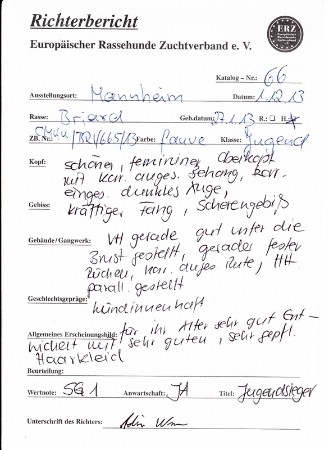 Richterbericht
Europäischer Rassehunde Zuchtverband e. V.
ERZ
Katalog – Nr.: 66
Ausstellungsort: Mannheim Datum: 1.12.13
Rasse: Briard Geb.datum: 1.13 R.: H.
ZB. Nr.: Farbe: fauve Klasse: Jugend
Kopf: schöner, femininer Oberkopf
mit korr. anges. Behang, korr.
einges. dunkles Auge,
Gebiss: kräftiger Fang, Scherengebiß
Gebäude/Gangwerk: VH gerade gut unter die
Brust gestellt, gerader fester
Rücken, korr. anges. Rute, HH
parall. gestellt
Geschlechtsgepräge: hündinnenhaft
Allgemeines Erscheinungsbild: für ihr Alter sehr gut Ent-
wickelt mit sehr guten, sehr gepfl.
Haarkleid
Beurteilung:
Wertnote: SG 1 Anwartschaft: JA Titel: Jugendsieger
Unterschrift des Richters: